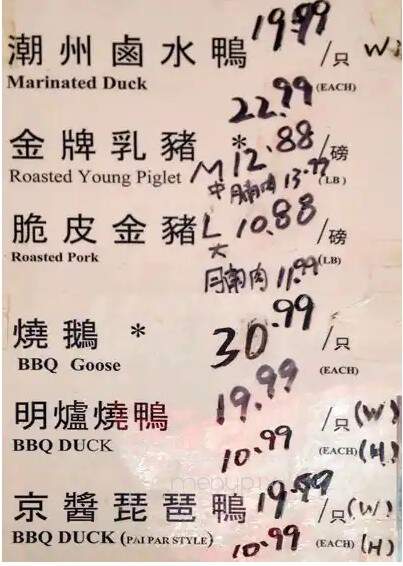 潮州鹵水鴨 19.99 /只 W
Marinated Duck (EACH)
22.99
金牌乳豬 * M 12.88 /磅
Roasted Young Piglet 中 腩肉 13.77 (LB)
脆皮金豬 L 10.88 /磅
Roasted Pork 大 (LB)
腩肉 11.99
燒鵝 * 30.99 /只
BBQ Goose (EACH)
明爐燒鴨 19.99 /只 (W)
BBQ DUCK 10.99 (EACH) (H)
京醬琵琶鴨 19.99 /只 (W)
BBQ DUCK (PAI PAR STYLE) 10.99 (EACH) (H)